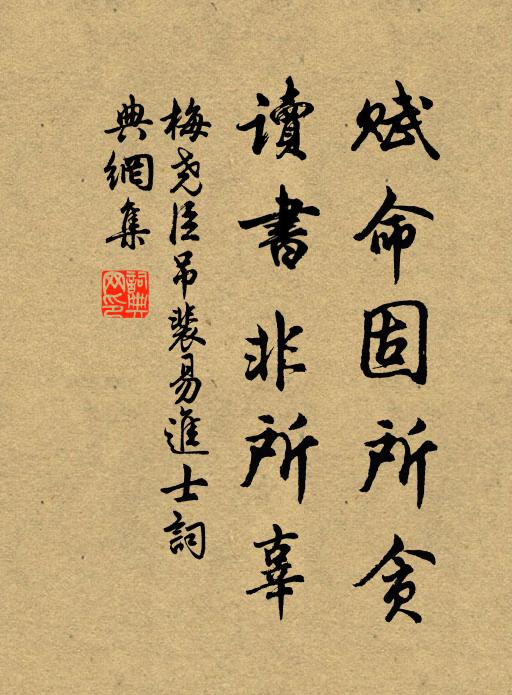 賦命固所貪
讀書非所辜
梅堯臣吊裴易進士詞
典網集
詞典網印